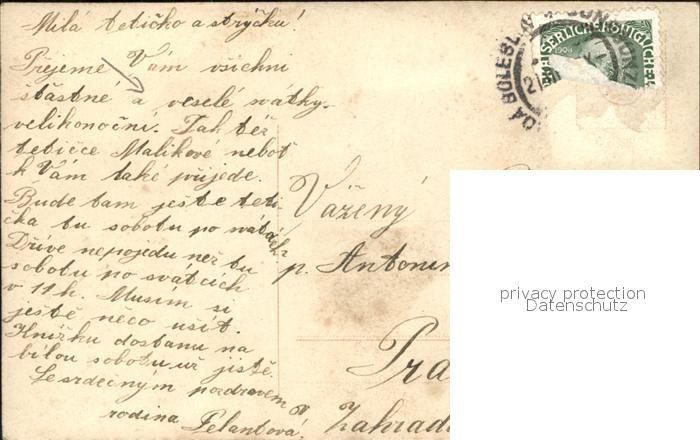 Milá tetičko a strýčku!
Přejeme Vám všichni
šťastné a veselé svátky
velikonoční. Tak též
tetičce Malikové neboť
k Vám také přijede.
Bude tam ještě teti-
čka tu sobotu po svátcích
Dříve nepojedu než tu
sobotu po svátcích
v 11 h. Musím si
ještě něco ušít.
Knížku dostanu na
bílou sobotu už jistě.
Se srdečným pozdravem
rodina Pelantová.
Vážený
p. Antonin
Pra
Zahrad
KAISERLICHE KÖNIGLICHE
1908
DA BOLESL
21
privacy protection
Datenschutz